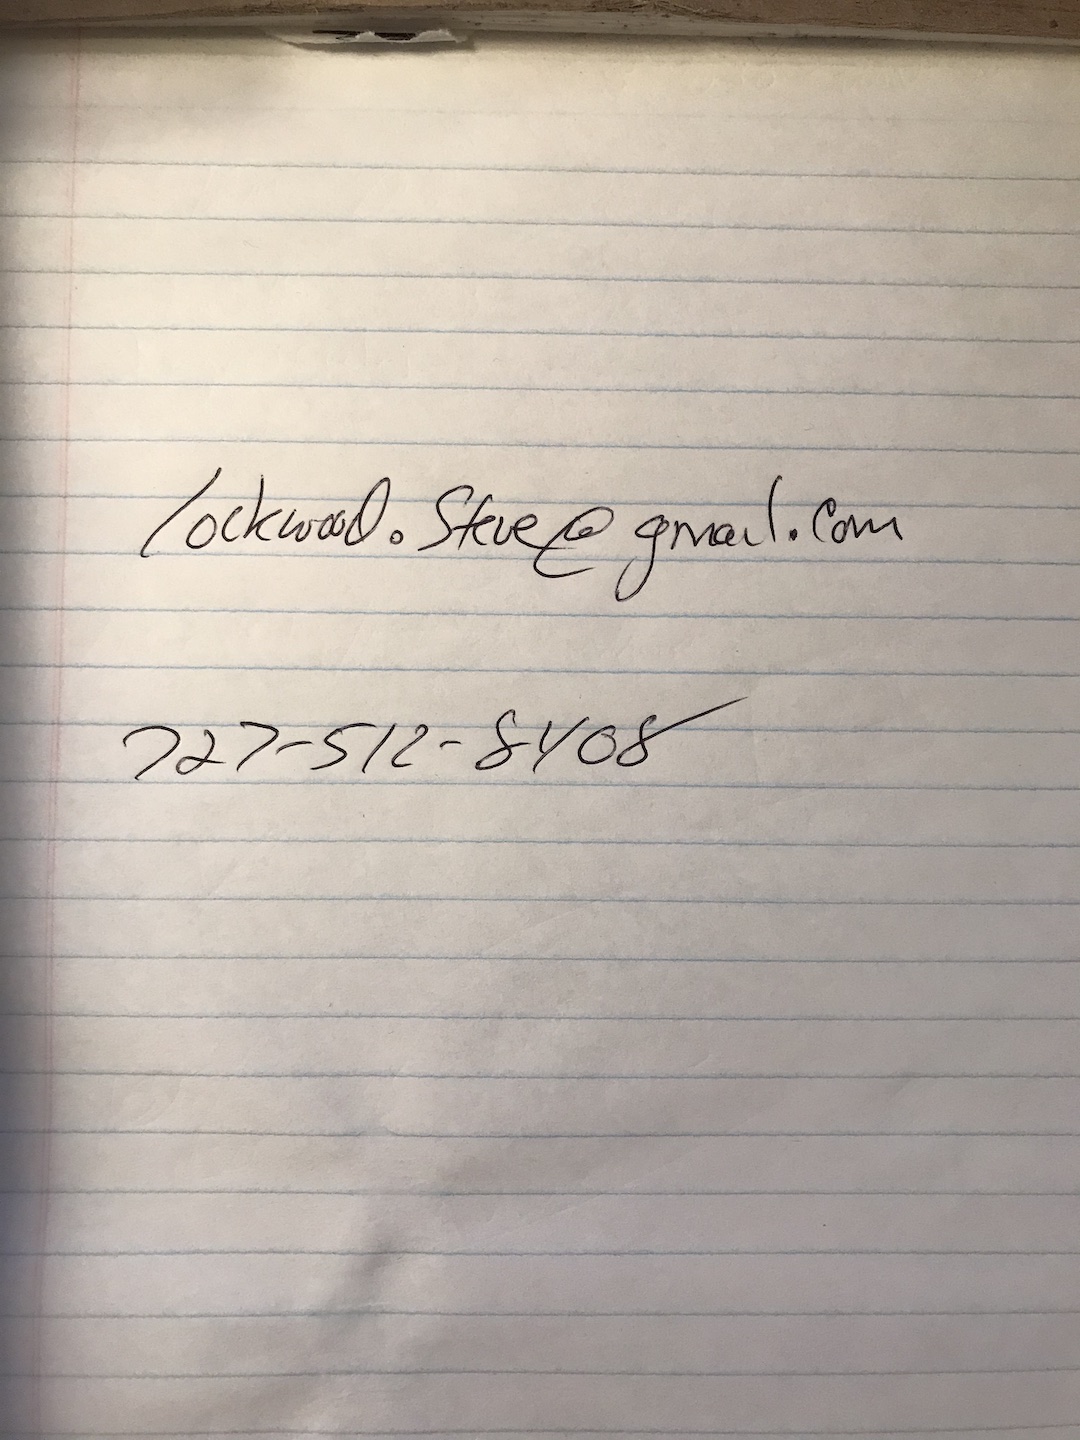 lockwood.Steve@gmail.com
727-512-8408